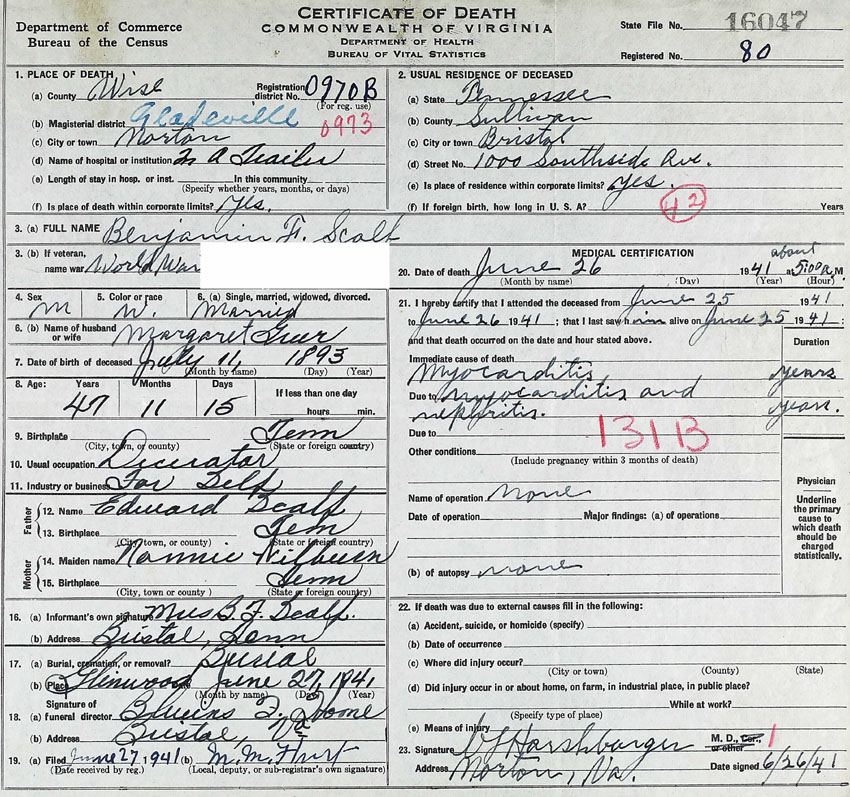 CERTIFICATE OF DEATH
COMMONWEALTH OF VIRGINIA
DEPARTMENT OF HEALTH
BUREAU OF VITAL STATISTICS
Department of Commerce
Bureau of the Census
State File No. 16047
Registered No. 80
1. PLACE OF DEATH
(a) County Wise
Registration district No. 0970B
(For reg. use)
(b) Magisterial district Gladeville 0973
(c) City or town Norton
(d) Name of hospital or institution In A Trailer
(e) Length of stay in hosp. or inst. In this community
(Specify whether years, months, or days)
(f) Is place of death within corporate limits? Yes.
2. USUAL RESIDENCE OF DECEASED
(a) State Tennessee
(b) County Sullivan
(c) City or town Bristol
(d) Street No. 1000 Southside Ave.
(e) Is place of residence within corporate limits? Yes.
(f) If foreign birth, how long in U. S. A.? Years
42
3. (a) FULL NAME Benjamin F. Scalf
3. (b) If veteran, name war World War
4. Sex M
5. Color or race W.
6. (a) Single, married, widowed, divorced. Married
6. (b) Name of husband or wife Margaret Greer
7. Date of birth of deceased July 11, 1893
(Month by name) (Day) (Year)
8. Age: Years Months Days If less than one day
47 11 15 hours min.
9. Birthplace Tenn
(City, town, or county) (State or foreign country)
10. Usual occupation Decorator
11. Industry or business For Self
Father
12. Name Edward Scalf
13. Birthplace Tenn
(City, town, or county) (State or foreign country)
Mother
14. Maiden name Nannie Wilburn
15. Birthplace Tenn
(City, town, or county) (State or foreign country)
16. (a) Informant's own signature Mrs B. F. Scalf.
(b) Address Bristol, Tenn
17. (a) Burial, cremation, or removal? Burial
(b) Place Glenwood June 27, 1941
(Month by name) (Day) (Year)
18. Signature of
(a) funeral director
(b) Address Bristol, Va
19. (a) Filed June 27, 1941 (b) M. M.
(Date received by reg.) (Local, deputy, or sub-registrar's own signature)
MEDICAL CERTIFICATION
20. Date of death June 26 1941 at about 5:00 a. M
(Month by name) (Day) (Year) (Hour)
21. I hereby certify that I attended the deceased from June 25 1941
to June 26 1941; that I last saw him alive on June 25 1941;
and that death occurred on the date and hour stated above.
Duration
Immediate cause of death
Myocarditis years
Due to myocarditis and
nephritis. years.
Due to 131B
Other conditions
(Include pregnancy within 3 months of death)
Name of operation none
Date of operation Major findings: (a) of operations
(b) of autopsy none
Physician
Underline the primary cause to which death should be charged statistically.
22. If death was due to external causes fill in the following:
(a) Accident, suicide, or homicide (specify)
(b) Date of occurrence
(c) Where did injury occur?
(City or town) (County) (State)
(d) Did injury occur in or about home, on farm, in industrial place, in public place?
While at work?
(Specify type of place)
(e) Means of injury
23. Signature Harshbarger M. D., Cor., or other 1
Address Norton, Va. Date signed 6/26/41